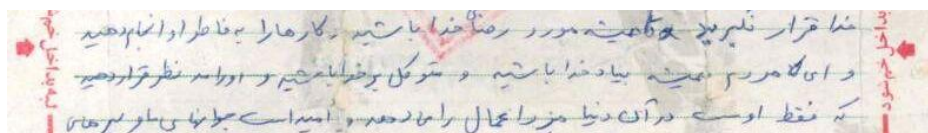 خدا قرار نگیرید و همیشه مورد رضای خدا باشید و کارها را به خاطر او انجام دهید
و ای مردم همیشه بیاد خدا باشید و متوکل بر خدا باشید و او را مد نظر قرار دهید
که فقط اوست در آن دنیا مزد اعمال را می دهد و امید است جوانهای ما و
لبه بداخل خم شود